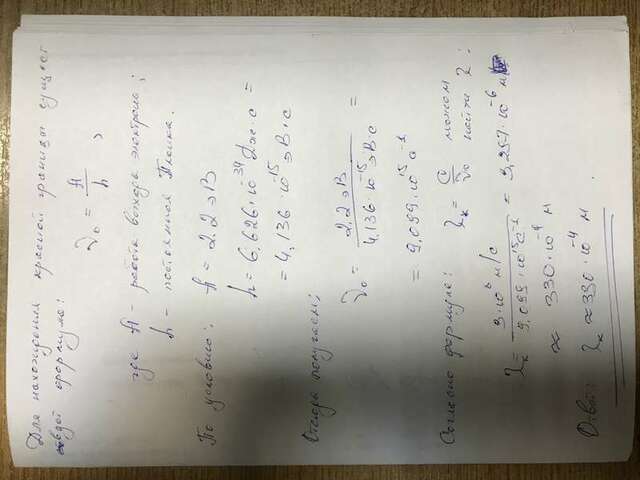 Для нахождения красной границы сущест
вует формула:
ν₀ = A/h ,
где A - работа выхода электрона;
h - постоянная Планка.
По условию: A = 2.2 эВ
h = 6,626·10⁻³⁴ Дж·с =
= 4,136·10⁻¹⁵ эВ·с
Отсюда получаем:
ν₀ = 2,2 эВ / 4,136·10⁻¹⁵ эВ·с =
= 9,099·10¹⁵ с⁻¹
Согласно формуле: λₖ = c/ν₀ можем
найти λ:
λₖ = 3·10⁸ м/с / 9,099·10¹⁵ с⁻¹ = 3,297·10⁻⁶ м
≈ 330·10⁻⁴ м
Ответ: λₖ ≈ 330·10⁻⁴ м .